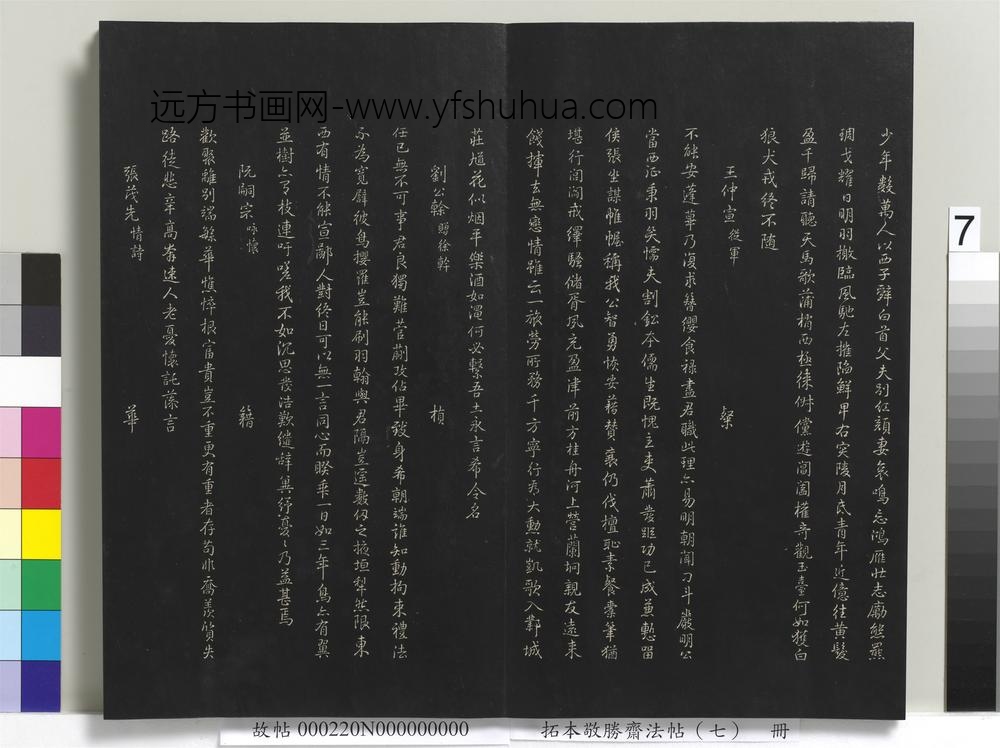 远方书画网-www.yfshuhua.com
少年數萬人以西子辭白首父夫別紅顏妻哀鳴忘鴻雁壯志勵熊羆
琱戈耀日明羽檄臨風馳左摧陷鮮卑右突陵月氐青年近億往黃髮
盈千歸請聽天馬歌蒲梢西極徠倘儻遊閶闔權奇觀玉臺何如獲白
狼犬戎終不隨
王仲宣從軍 粲
不能安蓬蓽乃復求簪纓食祿盡君職此理亦易明朝聞刁斗嚴明公
當西征秉羽矣懦夫割鉛本儒生既愧立吏蕭發蹤功已成兼慙留
侯張坐謀帷幄稱我公智勇恢安藉贊襄仍伐檀恥素餐橐筆猶
堪行閭閻戒繹騷儲胥夙充盈津前方桂舟河上營蘭坰親友遠來
餞揮去無戀情雖云一旅勞所務千方寧行看大勳就凱歌入鄴城
劉公幹 贈徐幹 楨
莊馗花似烟平樂酒如澠何必繫吾土永言希令名
任己無不可事君良獨難菅蒯攻佔畢致身希朝端誰知動拘束禮法
不為寬辟彼鳥攖羅豈能刷羽翰與君隔豈遙數仞之掖垣犁然限東
西有情不能宣鄙人對終日可以無一言同心而睽乖一日如三年鳥亦有翼
並樹亦有枝連吁嗟我不如沉思發浩歎繾辭冀紓憂憂乃益甚焉
阮嗣宗 咏懷 籍
歡聚離別端繁華憔悴根富貴豈不重更有重者存苟非喬羨質失
路徒悲辛高奔速人老憂懷託藻言
張茂先 情詩 華
7
故帖 000220N000000000 拓本敬勝齋法帖（七） 冊